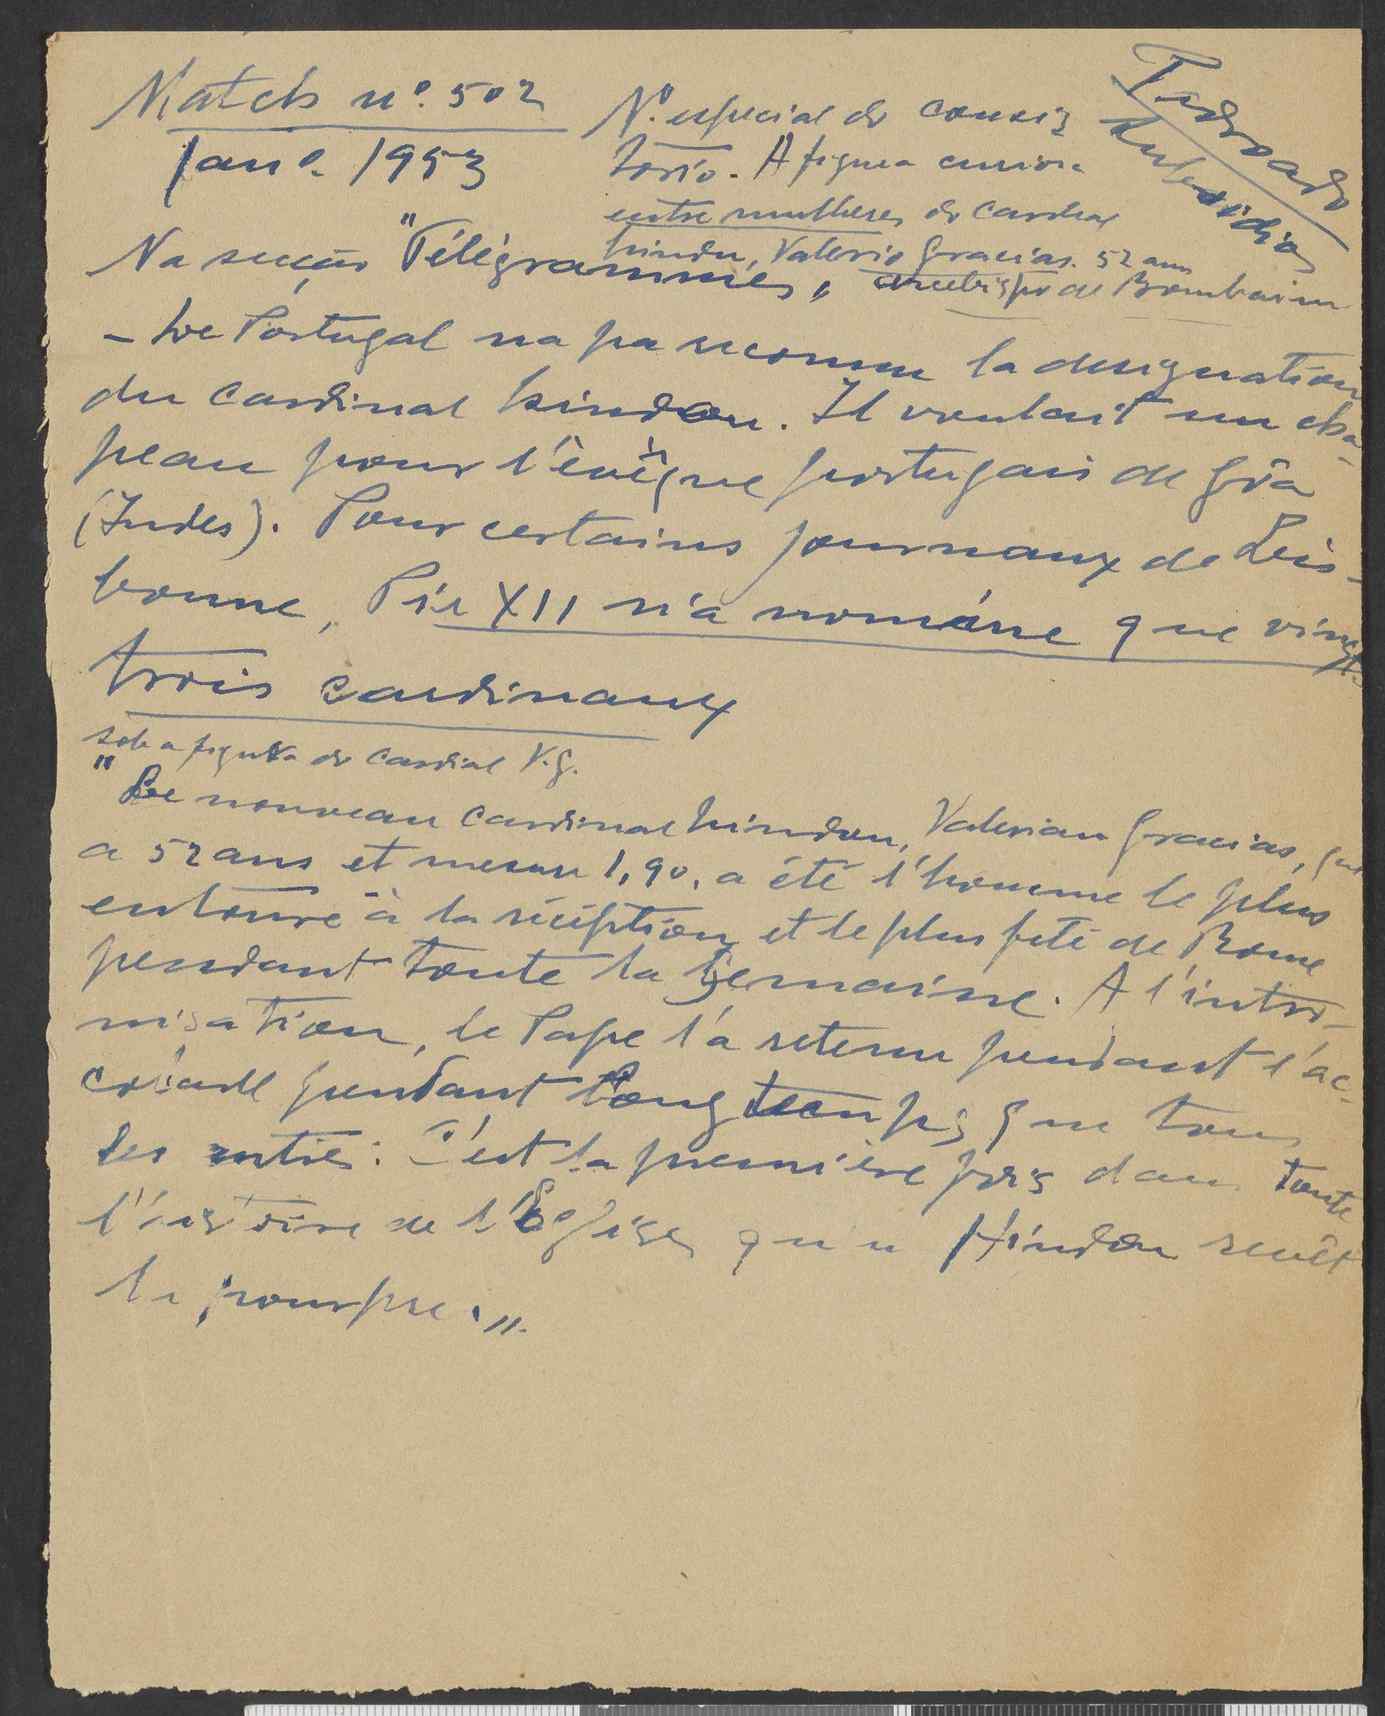 Match nº. 502
Janº. 1953
Padroado
Subsídios
Nº. especial do consis
torio. A figura curiosa
entre mulheres do cardeal
hindu, Valerio Gracias. 52 anos
arcebispo de Bombaim
Na secção "Télégrammes„
– Le Portugal na pa reconnu la designation
du cardinal hindou. Il voulait un cha-
peau pour l'évêque portugais de Gôa
(Indes). Pour certains journaux de Lis-
bonne, Pie XII n'a nomme que vingt-
trois cardinaux
sob a figura do cardial V.G.
"Le nouveau cardinal hindou, Valerian Gracias, qui
a 52 ans et mesure 1,90, a été l'homme le plus
entouré à la réception et le plus feté de Rome
pendant toute la semaine. A l'intro-
nisation, le Pape l'a retenu pendant l'ac-
colade pendant longtemps que tous
les autres: C'est la première fois dans toute
l'histoire de l'Eglise qu'u Hindou revêt
la pourpre.„